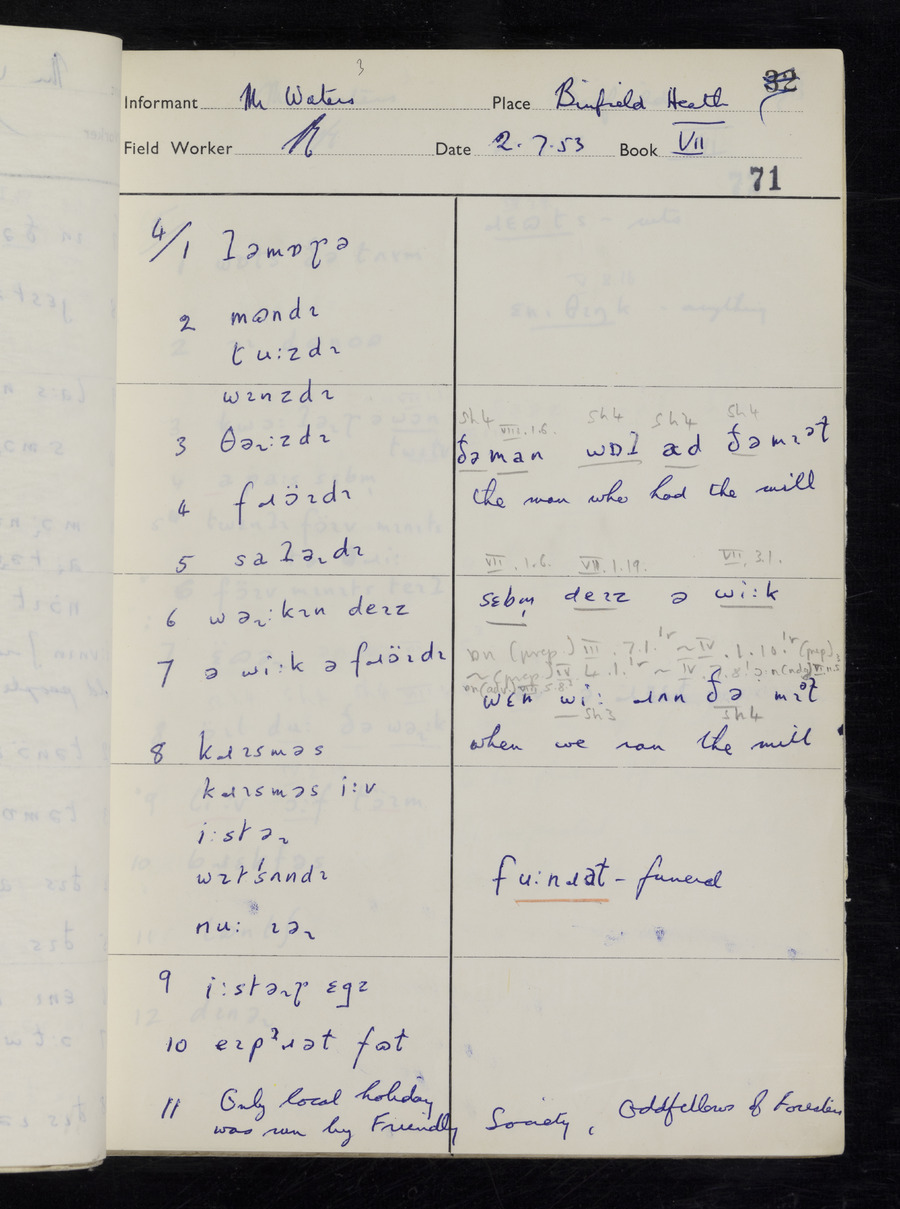 3
Informant Mr Waters Place Binfield Heath 32
Field Worker Date 2.7.53 Book VII
71
4/1 ləmɒɽə
2 mɷndɪ
tu:zdɪ
wɪnzdɪ
3 θəɽ:zdɪ
4 fɹöɪdɪ
5 saləɽdɪ
6 wəɽ:kɪn deɪz
7 ə wi:k ə fɹöɪdɪ
8 kɹɪsməs
kɹɪsməs i:v
i:stəɽ
wɪtsʌndɪ
nu: ɪəɽ
9 i:stəɽ ɛgz
10 eɪpɹəɫ fɷɫ
11 Only local holiday
was run by Friendly Society, Oddfellows & Foresters
sh4 VIII.1.6. sh4 sh4 sh4
ðə man wɒl æd ðə mɪəɫ
the man who had the mill
VII.1.6. VII.1.19. VII.3.1.
sɛbm̩ deɪz ə wi:k
wɛn wi: ɹʌn ðə mɪəɫ
sh3 sh4
when we ran the mill
fu:nɹəɫ - funeral